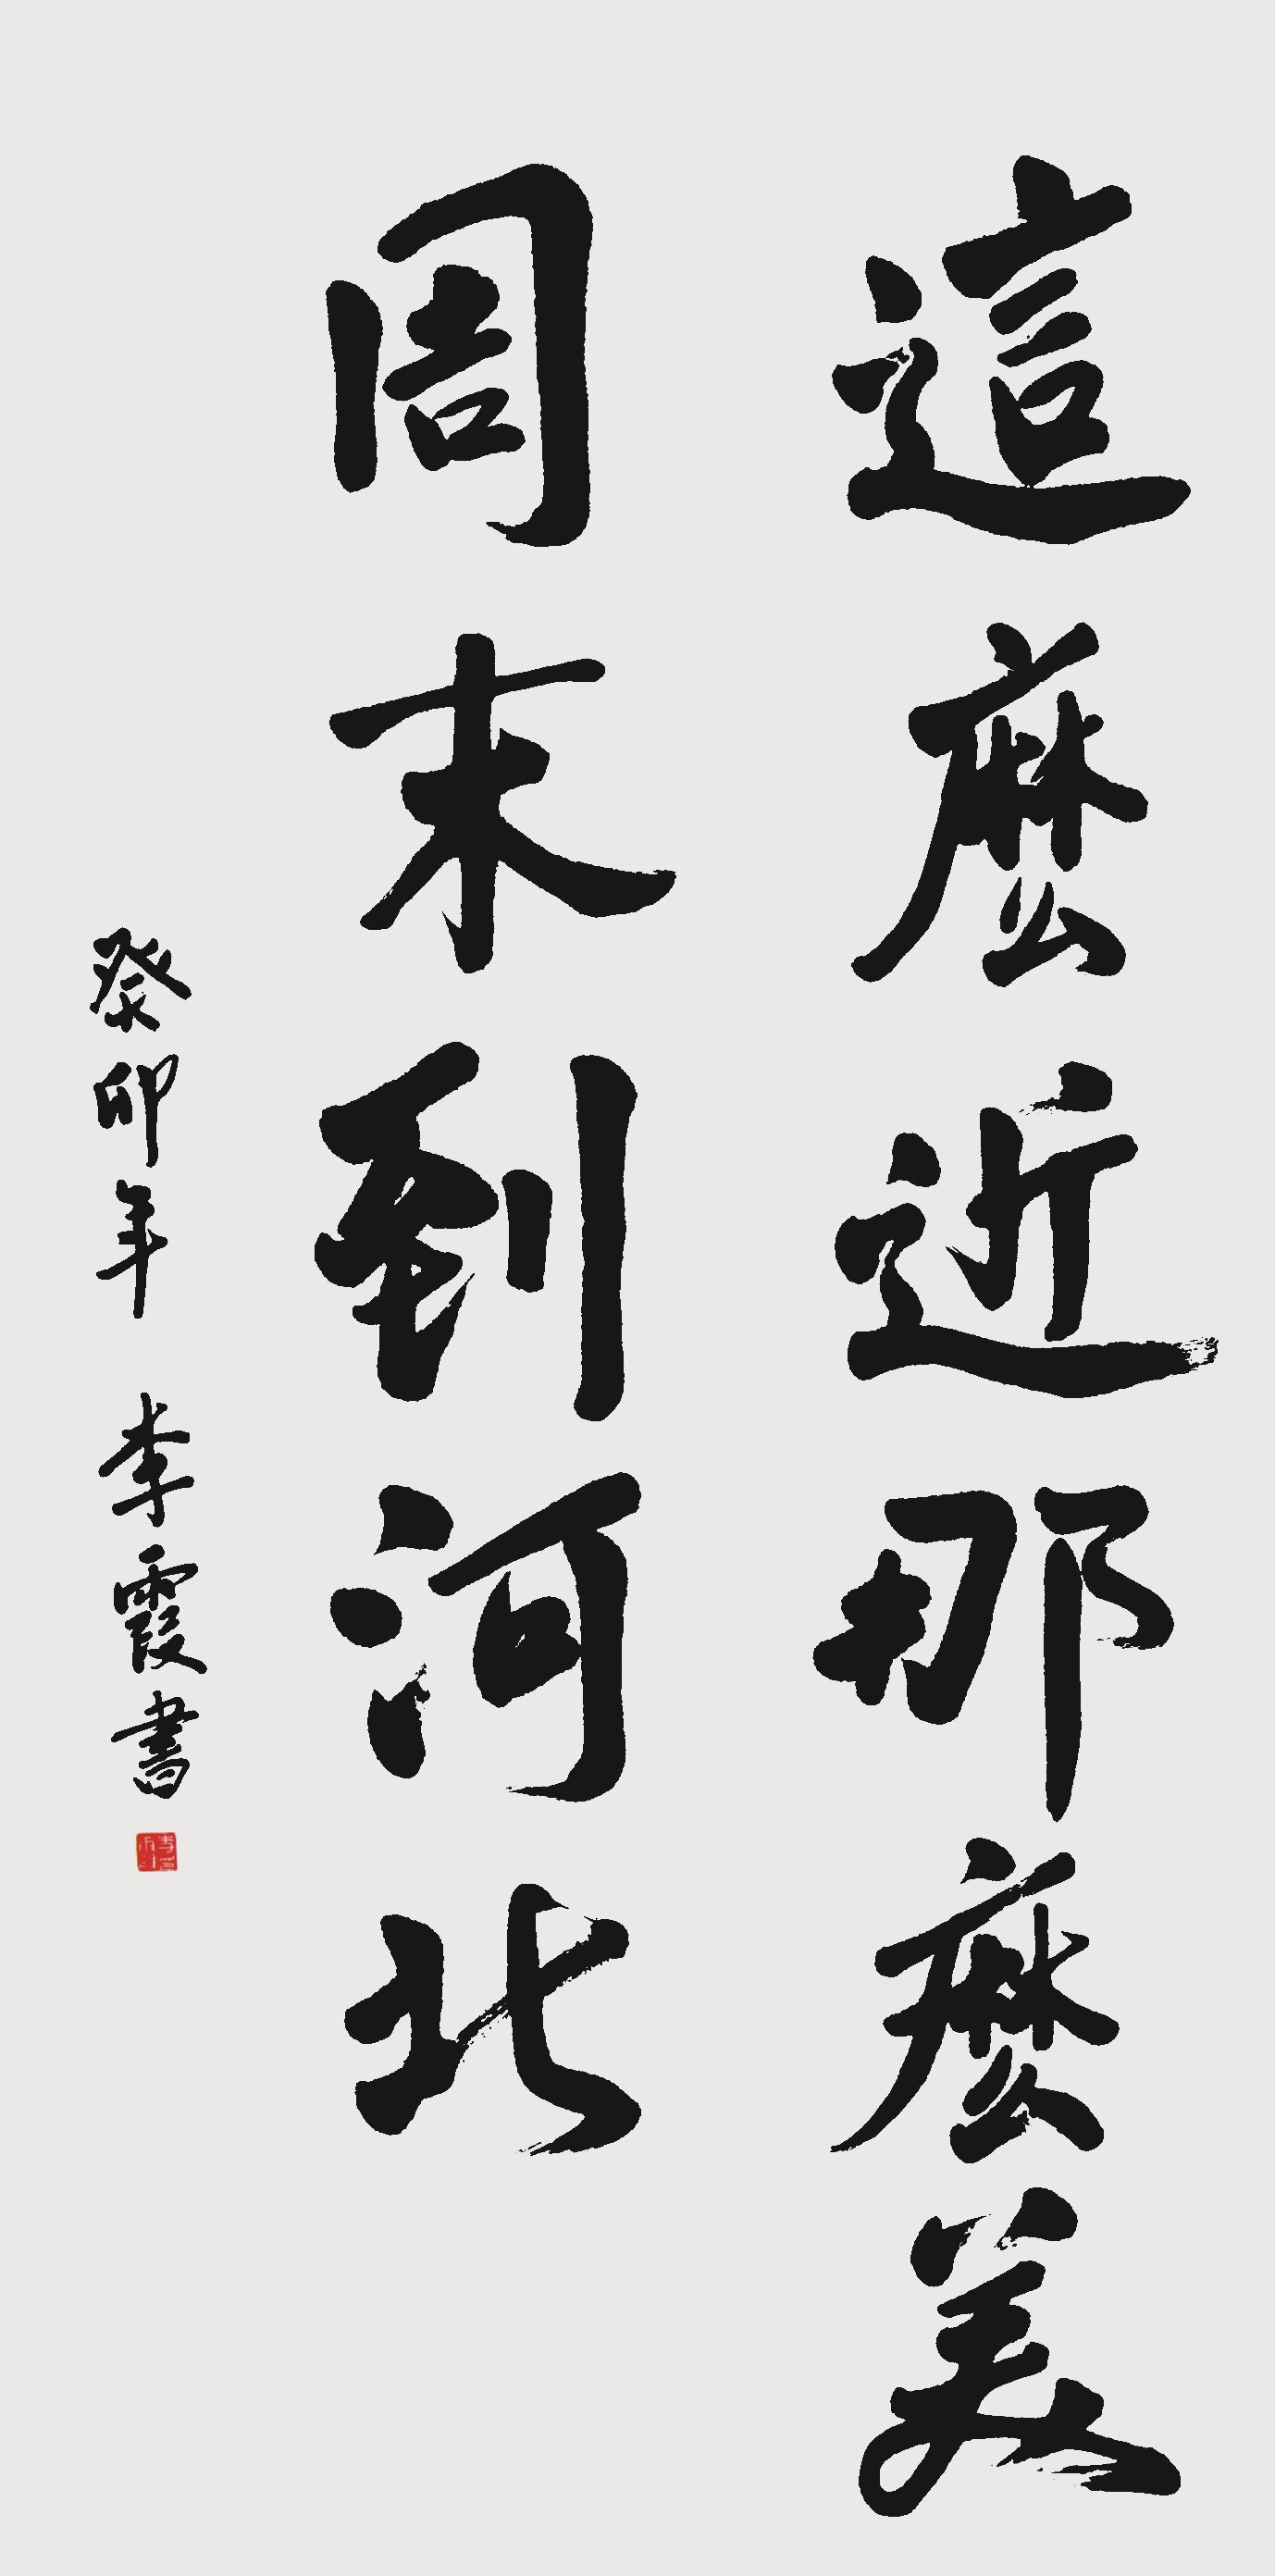 這麼近那麼美
周末到河北
癸卯年 李霞書